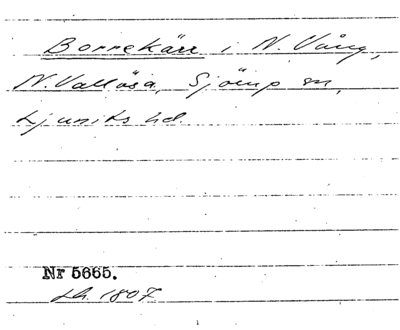 Bonnekärr i N. Vång,
N. Vallösa, Sjörup sn,
Ljunits hd.
Nr 5665.
Lh. 1807